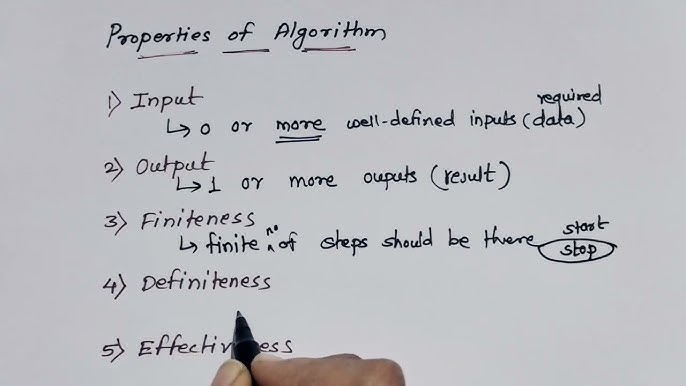 Properties of Algorithm
1) Input
required
↳ 0 or more well-defined inputs (data)
2) Output
↳ 1 or more ouputs (result)
3) Finiteness
start
↳ finite no of steps should be there stop
4) Definiteness
5) Effectiveness